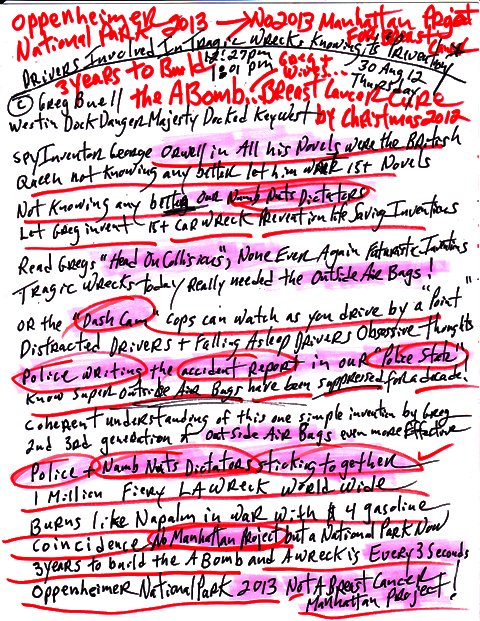 Oppenheimer
National Park 2013 → No 2013 Manhattan Project
For Breast Cancer
Drivers Involved In Tragic Wrecks Knowing its
12:27pm
1:01 pm
30 Aug 12
Thursday
3 years to Build
Greg +
Wives...
© Greg Buell the A Bomb... Breast Cancer Cure
Westin Dock Danger Majesty Docked Key West by Christmas 2012
Spy Inventor George Orwell in All his Novels were the British
Queen not Knowing any better let him 1st Novels
Not Knowing any better our Numb Nuts Dictators
Let Greg invent 1st Car Wreck Prevention Life Saving Inventions
Read Gregs "Head On Collisions", None Ever Again Futuristic Inventions
Tragic Wrecks today really needed the Outside Air Bags!
or the "Dash Cam" Cops can watch as you drive by a "Point"
Distracted Drivers + Falling Asleep Drivers Obsessive Thoughts
Police writing the accident Report in our "Police State"
Know Super Outside Air Bags have been suppressed for a decade!
Coherent understanding of this one simple invention by Greg
2nd 3rd generation of Outside Air Bags even more Effective
Police + Numb Nuts Dictators sticking together
1 Million Fiery LA Wreck World Wide
Burns like Napalm in war with $4 gasoline
Coincidence No Manhattan Project but a National Park Now
3 years to build the A Bomb and A wreck is Every 3 Seconds
Oppenheimer National Park 2013 Not A Breast Cancer
Manhattan Project!